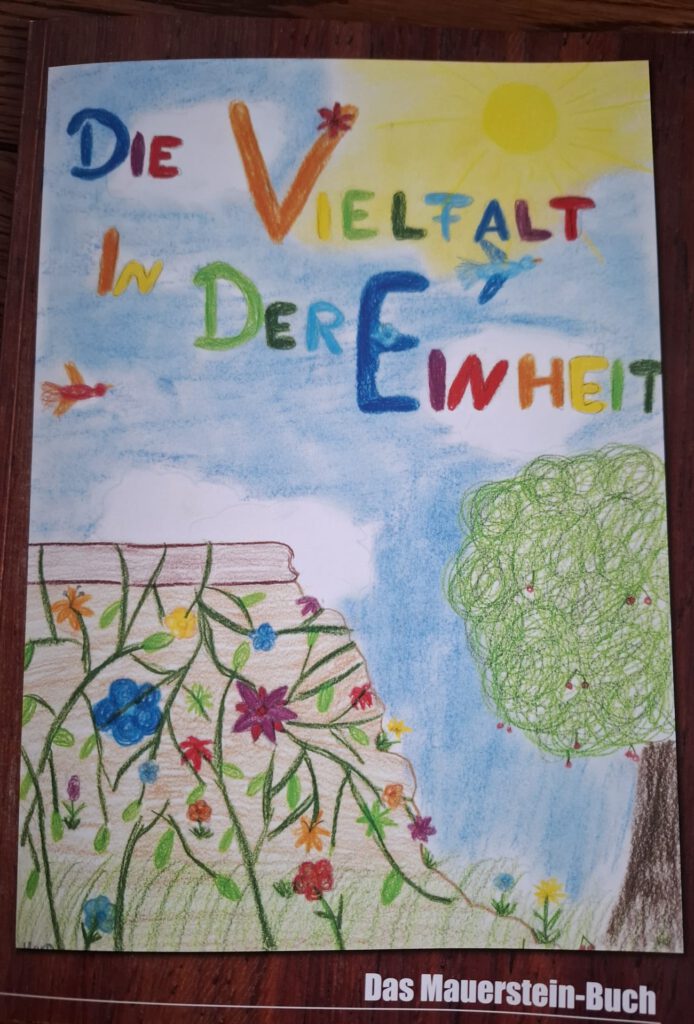 DIE VIELFALT
IN DER EINHEIT
Das Mauerstein-Buch